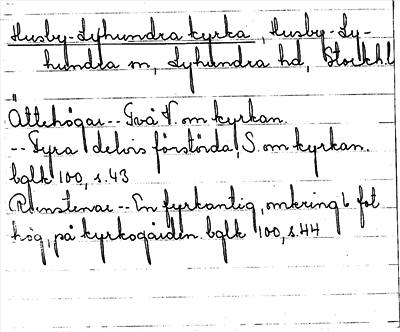 Husby-Lyhundra kyrka, Husby-Ly-
hundra sn, Lyhundra hd, Stockh.l
Ättehögar -- Två N. om kyrkan.
-- Fyra delvis förstörda, S. om kyrkan.
bglk 100, s. 43
Runstenar -- En fyrkantig, omkring 6 fot
hög, på kyrkogården. bglk 100, s. 44